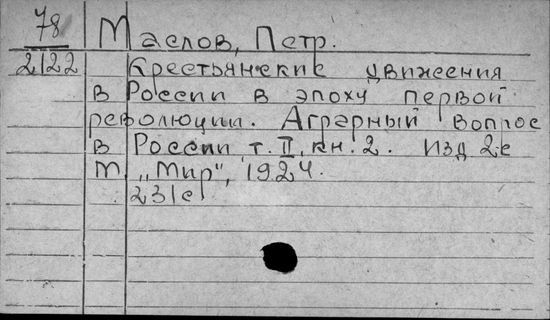 78 Маслов, Петр.
2122 Крестьянские движения
в России в эпоху первой
революции. Аграрный вопрос
в России т. II, кн. 2. Изд 2-е
М. „Мир", 1924.
231с